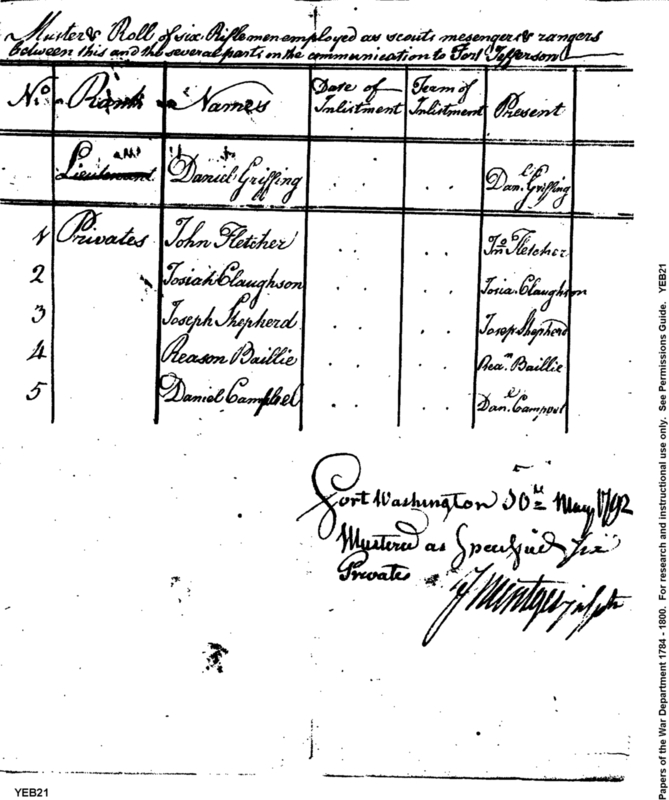 Muster & Roll of six Riflemen employed as scouts mesengers & rangers
between this and the several parts on the communication to Fort Jefferson
No. Rank Names Date of Inlistment Term of Inlistment Present
Lieutenant Daniel Griffing Danl. Griffing
1 Privates John Fletcher Jno Fletcher
2 Josiah Claughson Josia. Claughson
3 Joseph Shepherd Josep Shepherd
4 Reason Baillie Rean. Baillie
5 Daniel Campbel Danl. Campbel
Fort Washington 30th May 1792
Mustered as Specified Six
Privates
Papers of the War Department 1784 - 1800. For research and instructional use only. See Permissions Guide. YEB21
YEB21